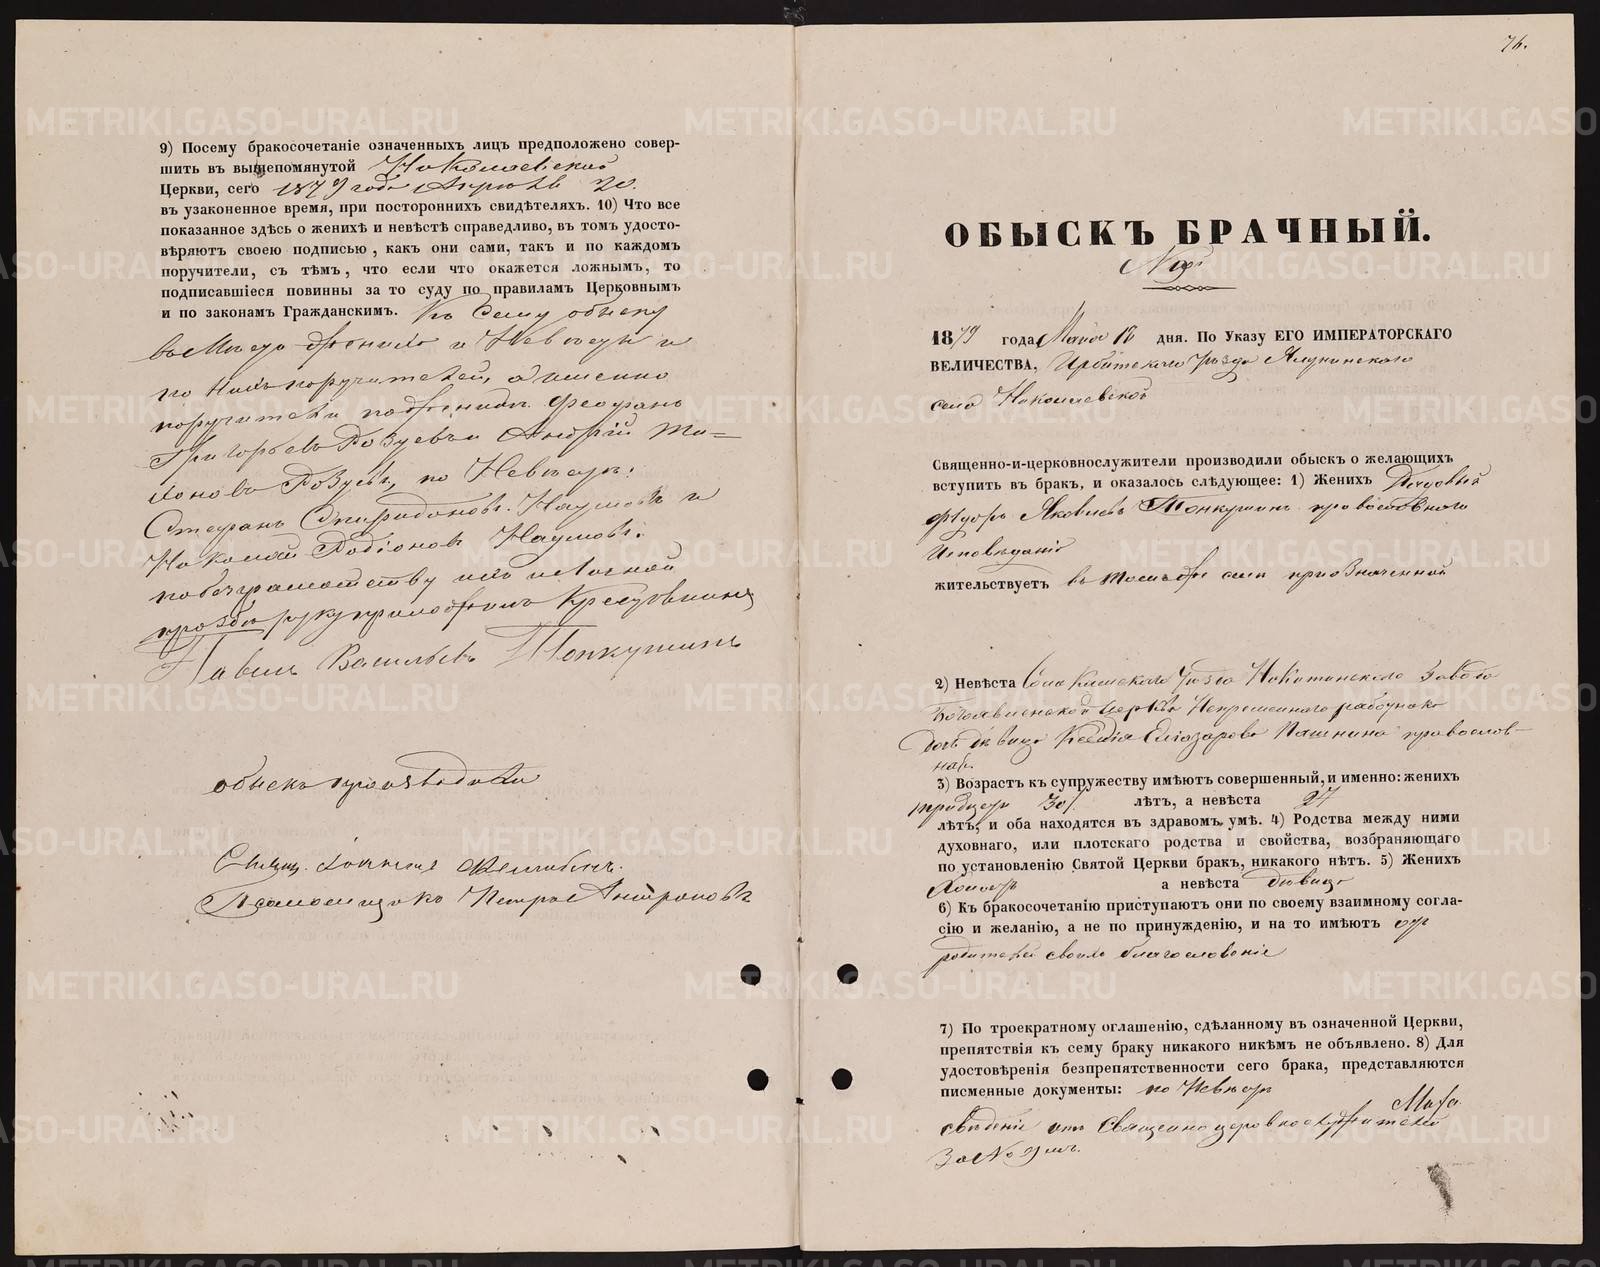 9) Посему бракосочетаніе означенныхъ лицъ предположено совер-
шить въ вышепомянутой Николаевской
Церкви, сего 1879 года Апреля 20.
въ узаконенное время, при постороннихъ свидѣтеляхъ. 10) Что все
показанное здѣсь о женихѣ и невѣстѣ справедливо, въ томъ удосто-
вѣряютъ своею подписью, какъ они сами, такъ и по каждомъ
поручители, съ тѣмъ, что если что окажется ложнымъ, то
подписавшіеся повинны за то суду по правиламъ Церковнымъ
и по законамъ Гражданскимъ. Къ сему обыску
вместо жениха и Невесты и
по нихъ поручителей, а именно
поручители по женихе. Феофанъ
Григорьевъ и Андрей Ти-
хоновъ по Невесте:
Стефанъ Спиридоновъ. Наумовъ и
Николай Родіоновъ Наумовъ.
по безграмотству ихъ и личной
прозьбе руку приложилъ Крестьянинъ
Павелъ Васильевъ Тонкушинъ
обыскъ производили
Священ. Іоаннъ
Псаломщикъ Петръ Антроповъ
76.
ОБЫСКЪ БРАЧНЫЙ.
№
1879 года Маія дня. По Указу ЕГО ИМПЕРАТОРСКАГО
ВЕЛИЧЕСТВА, Ирбитскаго уѣзда
села Николаевской
Священно-и-церковнослужители производили обыскъ о желающихъ
вступить въ бракъ, и оказалось слѣдующее: 1) Женихъ
Ѳедоръ Яковлевъ Тонкушинъ православнаго
Исповеданія
жительствуетъ въ томъ же селе
2) Невѣста уѣзда Завода
Богоявленской церкви Непременного работника
дочь девица Ксенія Елиазарова Пашнина православ-
ная.
3) Возрастъ къ супружеству имѣютъ совершенный, и именно: женихъ
тридцать 30 лѣтъ, а невѣста 27
лѣтъ, и оба находятся въ здравомъ умѣ. 4) Родства между ними
духовнаго, или плотскаго родства и свойства, возбраняющаго
по установленію Святой Церкви бракъ, никакого нѣтъ. 5) Женихъ
Холостъ а невѣста девица
6) Къ бракосочетанію приступаютъ они по своему взаимному согла-
сію и желанію, а не по принужденію, и на то имѣютъ отъ
родителей своихъ благословеніе
7) По троекратному оглашенію, сдѣланному въ означенной Церкви,
препятствія къ сему браку никакого никѣмъ не объявлено. 8) Для
удостовѣренія безпрепятственности сего брака, представляются
писменные документы: по Невесте
сведеніе отъ Священноцерковнослужителей
За №
METRIKI.GASO-URAL.RU